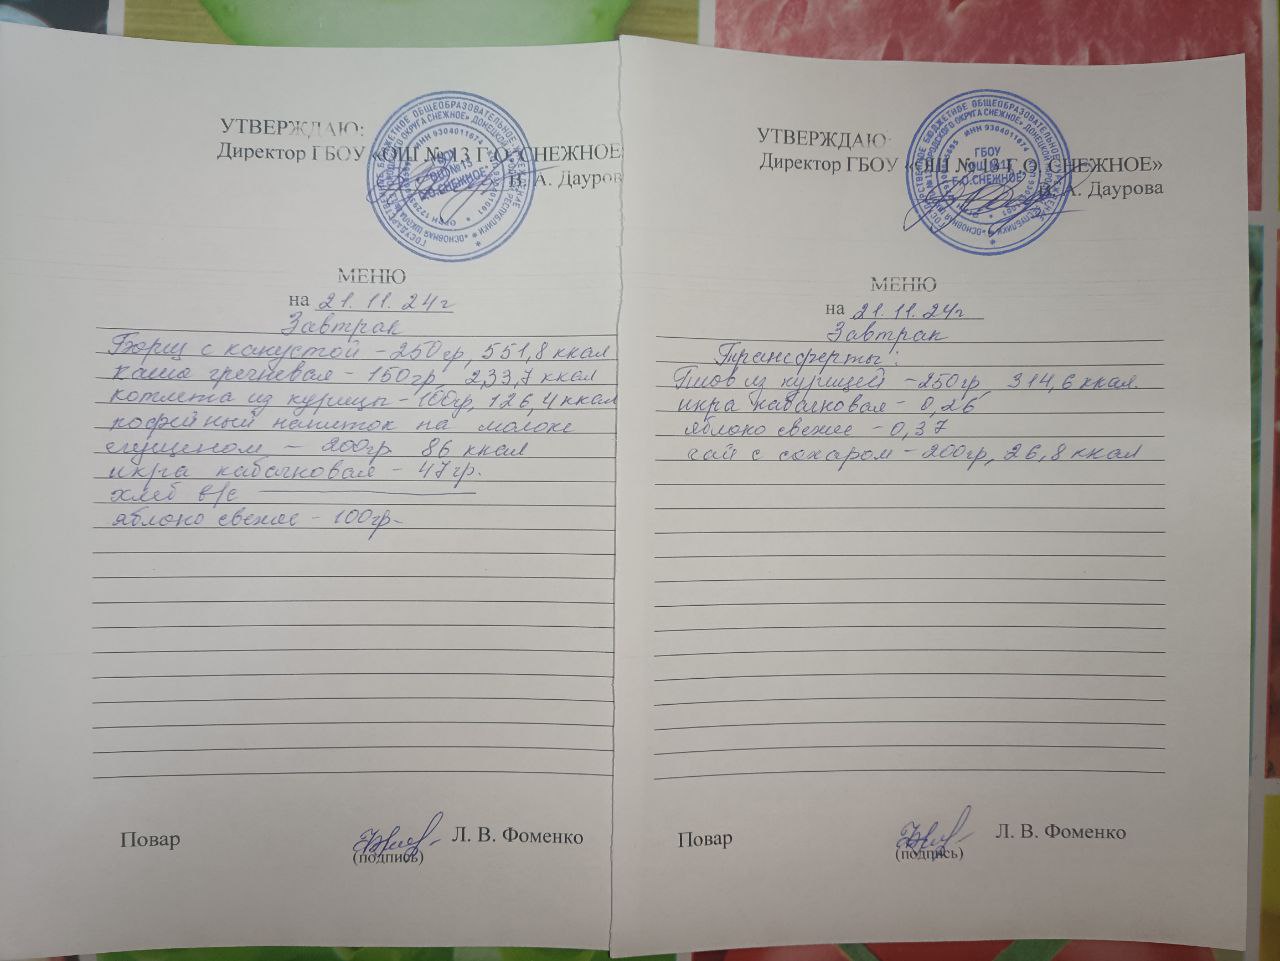 УТВЕРЖДАЮ:
Директор ГБОУ «ОШ № 13 Г.О. СНЕЖНОЕ
В. А. Дауров
МЕНЮ
на 21. 11. 24г
Завтрак
Борщ с капустой - 250гр, 551,8 ккал
каша гречневая - 150гр, 233,7 ккал
котлета из курицы - 100гр, 126,4 ккал
кофейный напиток на молоке
сгущеном - 200гр 86 ккал
икра кабачковая - 47гр.
хлеб в/с
яблоко свежее - 100гр.
Повар
Л. В. Фоменко
(подпись)
УТВЕРЖДАЮ:
Директор ГБОУ «ОШ № 13 Г.О. СНЕЖНОЕ»
В. А. Даурова
МЕНЮ
на 21. 11. 24г
Завтрак
Трансферты:
Плов из курицей - 250гр, 314,6 ккал.
икра кабачковая - 0,26
яблоко свежее - 0,37
чай с сахаром - 200гр, 26,8 ккал
Повар
Л. В. Фоменко
(подпись)
ГБОУ
"ОШ №13
Г.О.СНЕЖНОЕ"